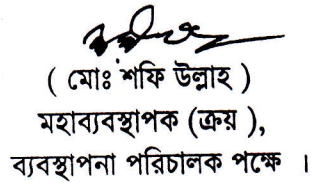 ( মোঃ শফি উল্লাহ )
মহাব্যবস্থাপক (ক্রয়),
ব্যবস্থাপনা পরিচালক পক্ষে ।